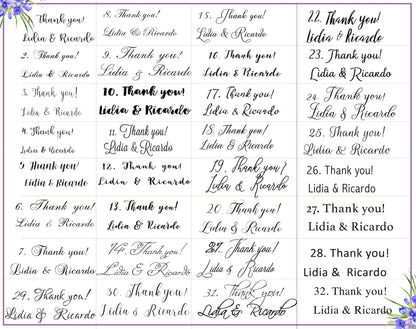 Thank you!
Lidia & Ricardo
2. Thank you!
Lidia & Ricardo
3. Thank you!
Lidia & Ricardo
4. Thank you!
Lidia & Ricardo
5. Thank you!
Lidia & Ricardo
6. Thank you!
Lidia & Ricardo
7. Thank you!
Lidia & Ricardo
29. Thank you!
Lidia & Ricardo
8. Thank you!
Lidia & Ricardo
9. Thank you!
Lidia & Ricardo
10. Thank you!
Lidia & Ricardo
11. Thank you!
Lidia & Ricardo
12. Thank you!
Lidia & Ricardo
13. Thank you!
Lidia & Ricardo
14. Thank you!
Lidia & Ricardo
30. Thank you!
Lidia & Ricardo
15. Thank you!
Lidia & Ricardo
16. Thank you!
Lidia & Ricardo
17. Thank you!
Lidia & Ricardo
18. Thank you!
Lidia & Ricardo
19. Thank you!
Lidia & Ricardo
20. Thank you!
Lidia & Ricardo
Thank you!
Lidia & Ricardo
31. Thank you!
Lidia & Ricardo
22. Thank you!
Lidia & Ricardo
23. Thank you!
Lidia & Ricardo
24. Thank you!
Lidia & Ricardo
25. Thank you!
Lidia & Ricardo
26. Thank you!
Lidia & Ricardo
27. Thank you!
Lidia & Ricardo
28. Thank you!
Lidia & Ricardo
32. Thank you!
Lidia & Ricardo